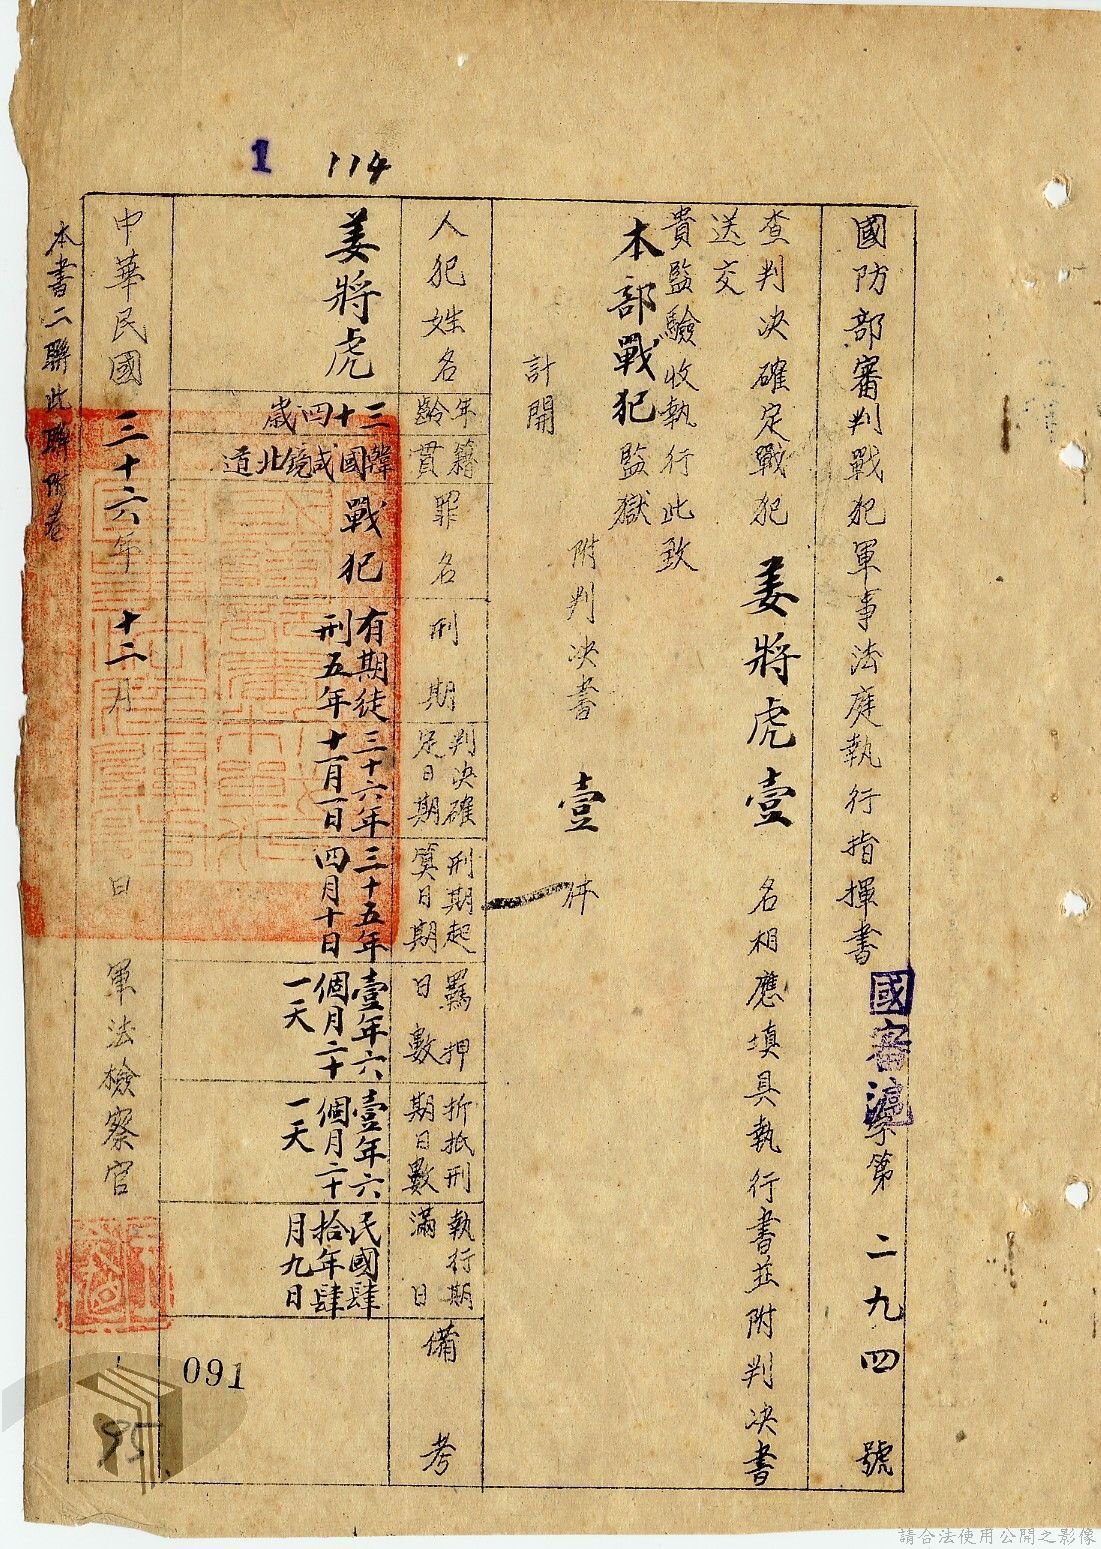 1 114
國防部審判戰犯軍事法庭執行指揮書 國審滬字第二九四號
查判決確定戰犯姜將虎壹名相應填具執行書並附判決書
送交
貴監驗收執行此致
本部戰犯監獄
附判決書壹件
計開
人犯姓名
姜將虎
年齡
三十四歲
籍貫
韓國咸鏡北道
罪名
戰犯
刑期
有期徒
刑五年
判決確
定日期
三十六年
十一月一日
刑期起
算日期
三十五年
四月十日
羈押
日數
壹年六
個月二十
一天
折抵刑
期日數
壹年六
個月二十
一天
執行期
滿日
民國肆
拾年肆
月九日
備考
中華民國三十六年十二月 日 軍法檢察官
本書二聯此聯附卷
091
95
請合法使用公開之影像